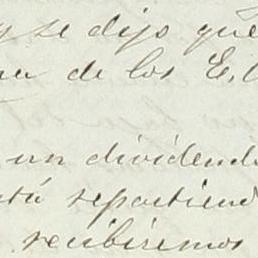 y se dijo que
de los E.
un dividend
está repartiend
recibiremos